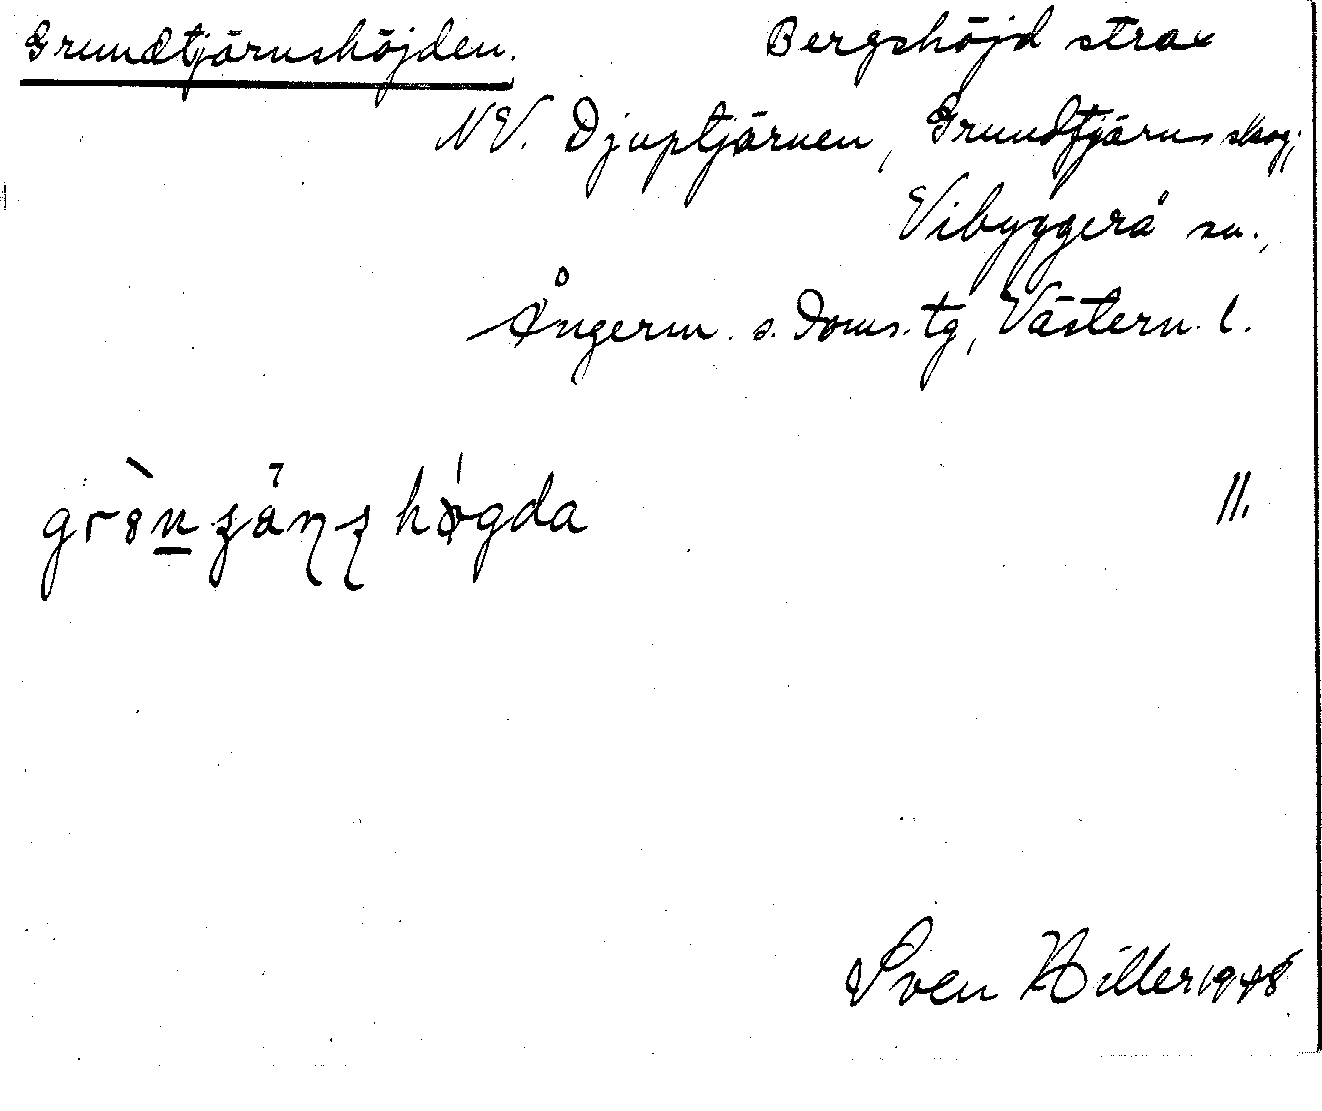 Grundtjärnshöjden. Bergshöjd strax
NV. Djuptjärnen, Grundtjärns skog,
Vibyggerå sn.,
Ångerm. s. doms. tg, Västern. l.
högda 11.
Sven Hiller 1948